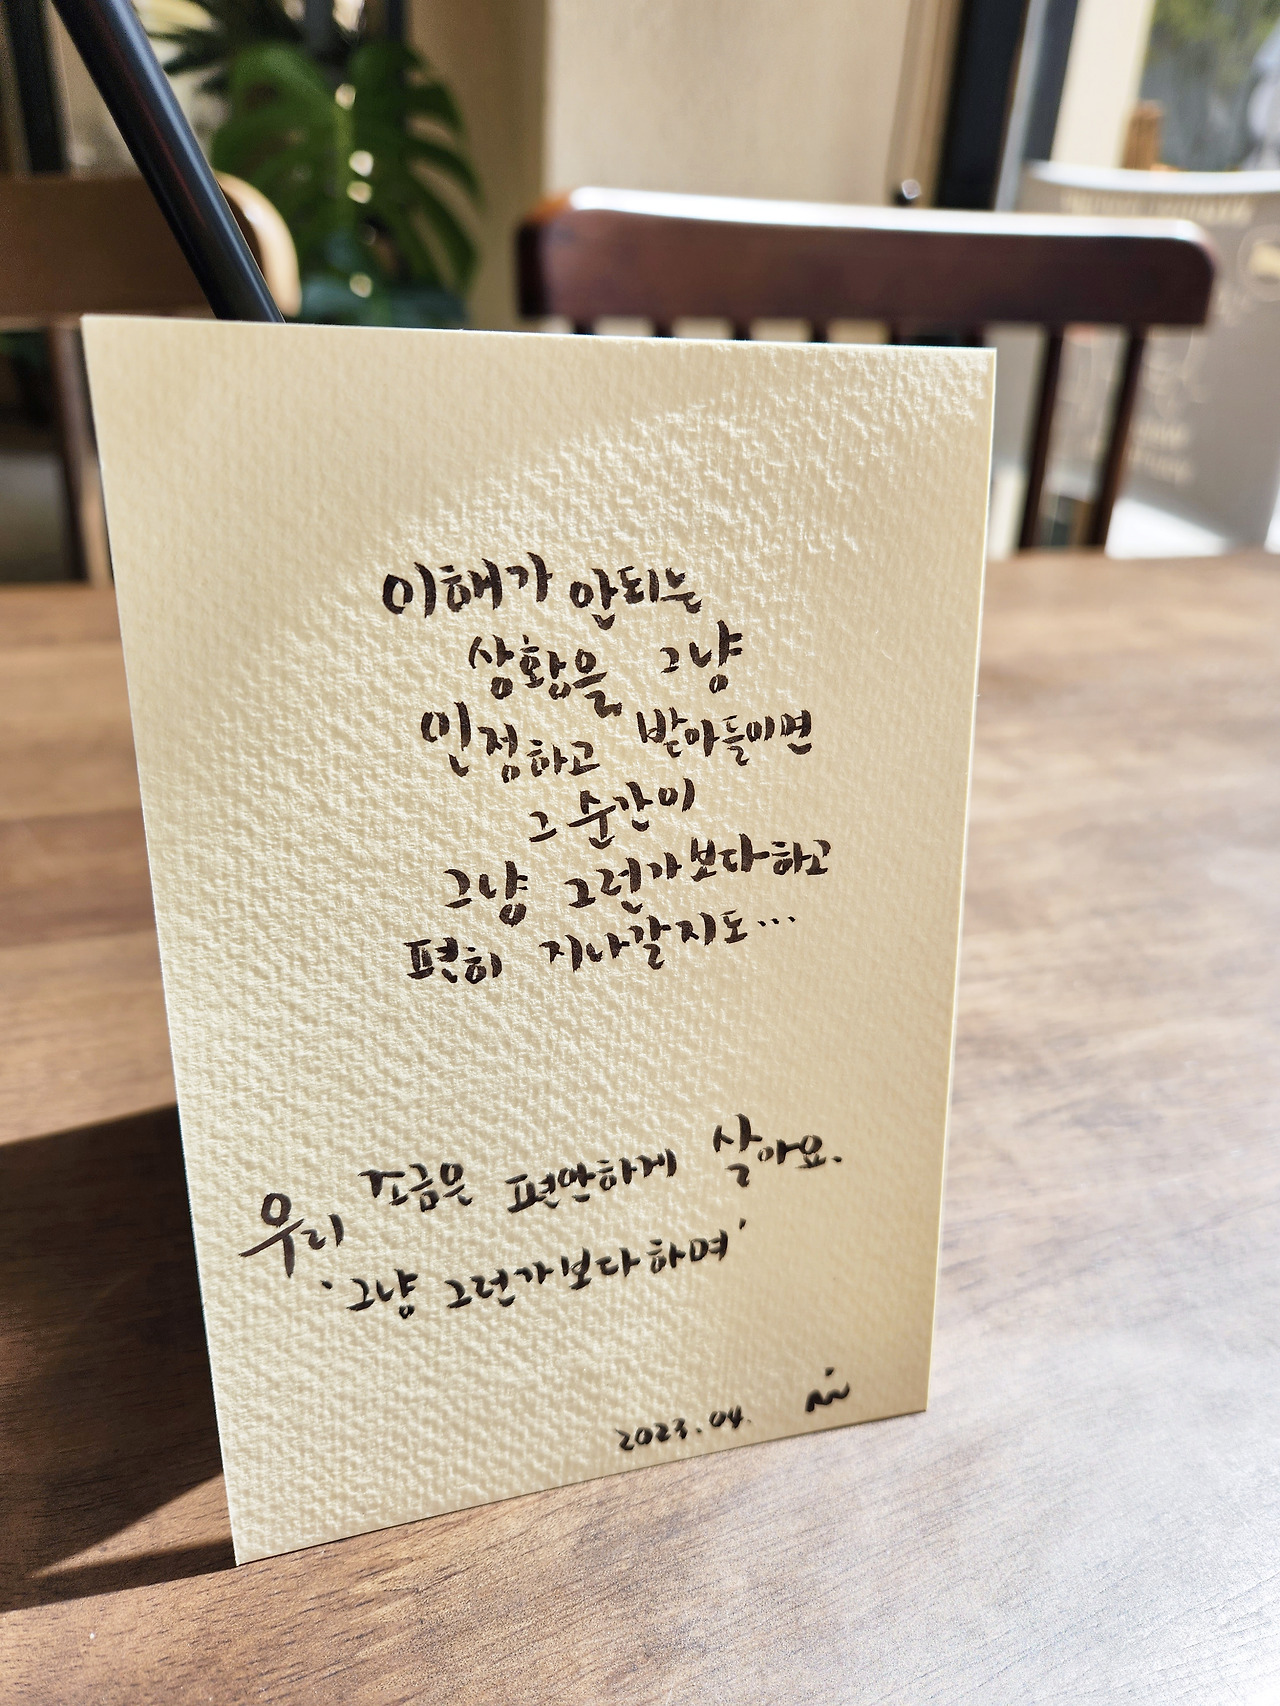 이해가 안되는
상황을 그냥
인정하고 받아들이면
그 순간이
그냥 그런가보다하고
편히 지나갈지도...
우리 조금은 편안하게 살아요.
'그냥 그런가보다하며'
2023.04.